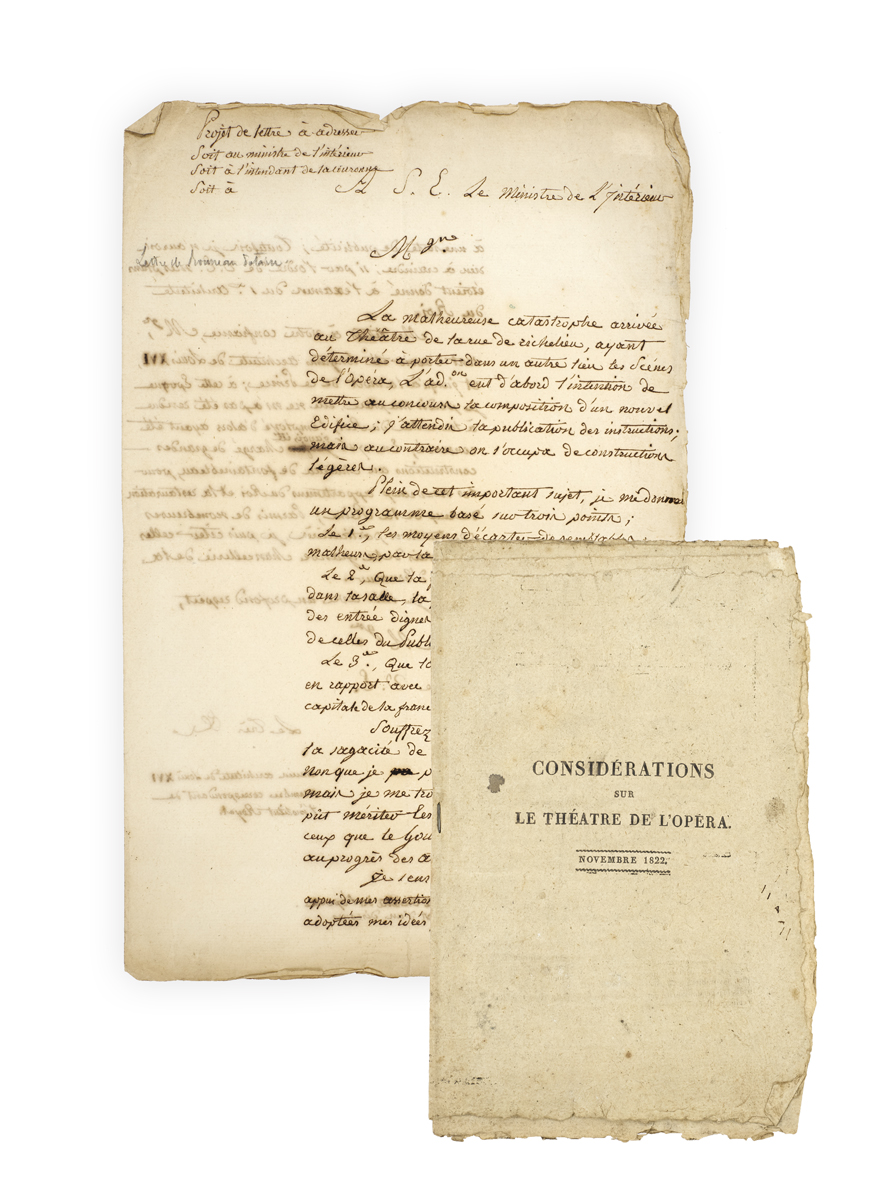 Projet de lettre à adresser
Soit au ministre de l'intérieur
Soit à l'intendant de la couronne
Soit à
A S. E. Le Ministre de L'Intérieur
M gne.
La malheureuse catastrophe arrivée
au Théâtre de la rue de richelieu, ayant
déterminé à porter dans un autre lieu les Scénes
de l'opéra, L'ad.on eut d'abord l'intention de
mettre au concours la composition d'un nouvel
Edifice; j'attendis la publication des instructions;
mais au contraire on s'occupa de constructions
légères.
Plein de cet important sujet, je me donnai
un programme basé sur trois points;
Le 1.er, les moyens d'écarter de semblables
malheurs, par la
Le 2.e, Que la
dans la salle, la
des entrée dignes
de celles du Publ
Le 3.e, Que la
en rapport avec
capitale de la franc
Souffrez
la sagacité de
non que je p
mais je me tro
pût mériter les
ceux que le Gou
au progrès des a
je sens
appui de mes assertion
adoptées mes idées
CONSIDÉRATIONS
SUR
LE THÉATRE DE L'OPÉRA.
NOVEMBRE 1822.